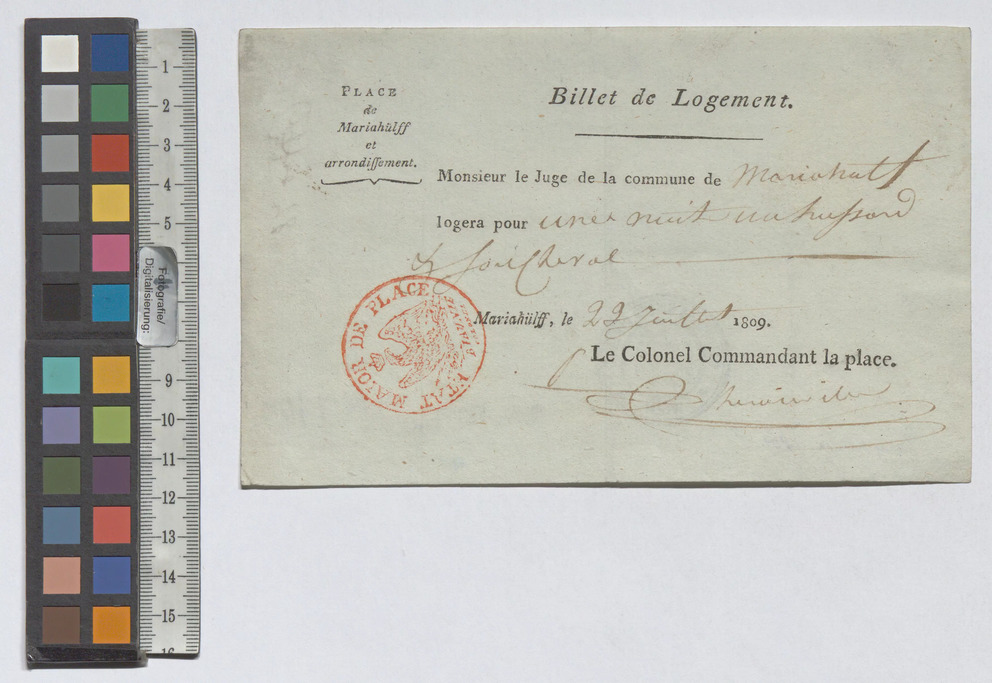 PLACE
de
Mariahülff
et
arrondiſſement.
Billet de Logement.
Monsieur le Juge de la commune de Mariahulf
logera pour une nuit un hussard
& son Cheval
Mariahülff, le 22 Juillet 1809.
Le Colonel Commandant la place.
ETAT MAJOR DE PLACE
Fotografie/
Digitalisierung:
1
2
3
4
5
9
10
11
12
13
14
15
16